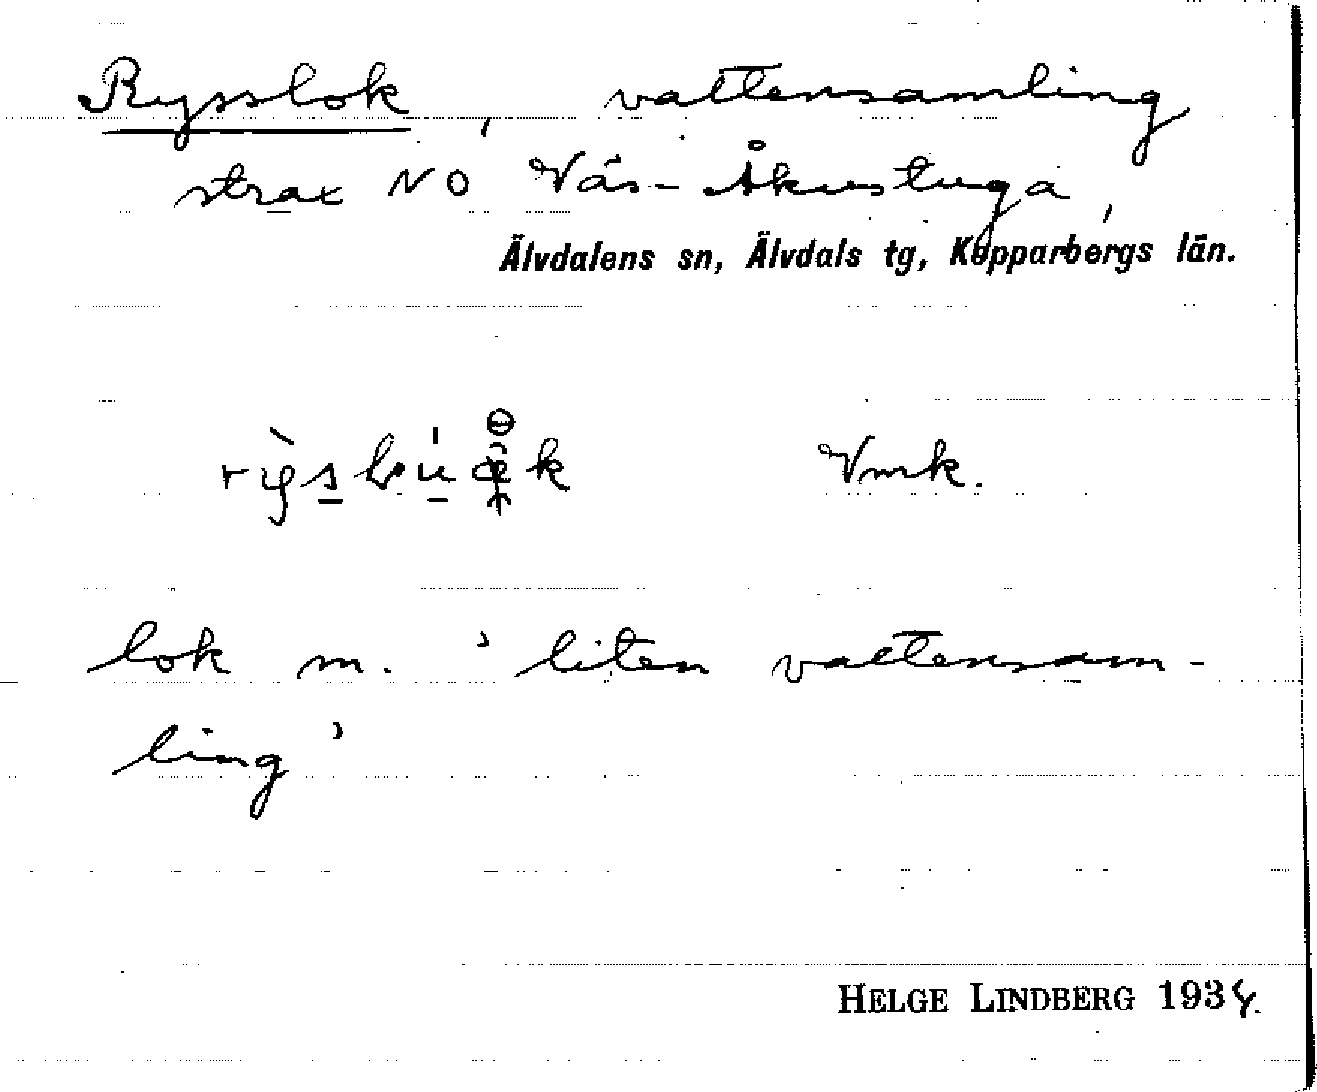 Rysslok, vattensamling
strax NO Väs-Åkustuga,
Älvdalens sn, Älvdals tg, Kopparbergs län.
Vmk.
lok m. ’liten vattensam-
ling’
HELGE LINDBERG 1934.